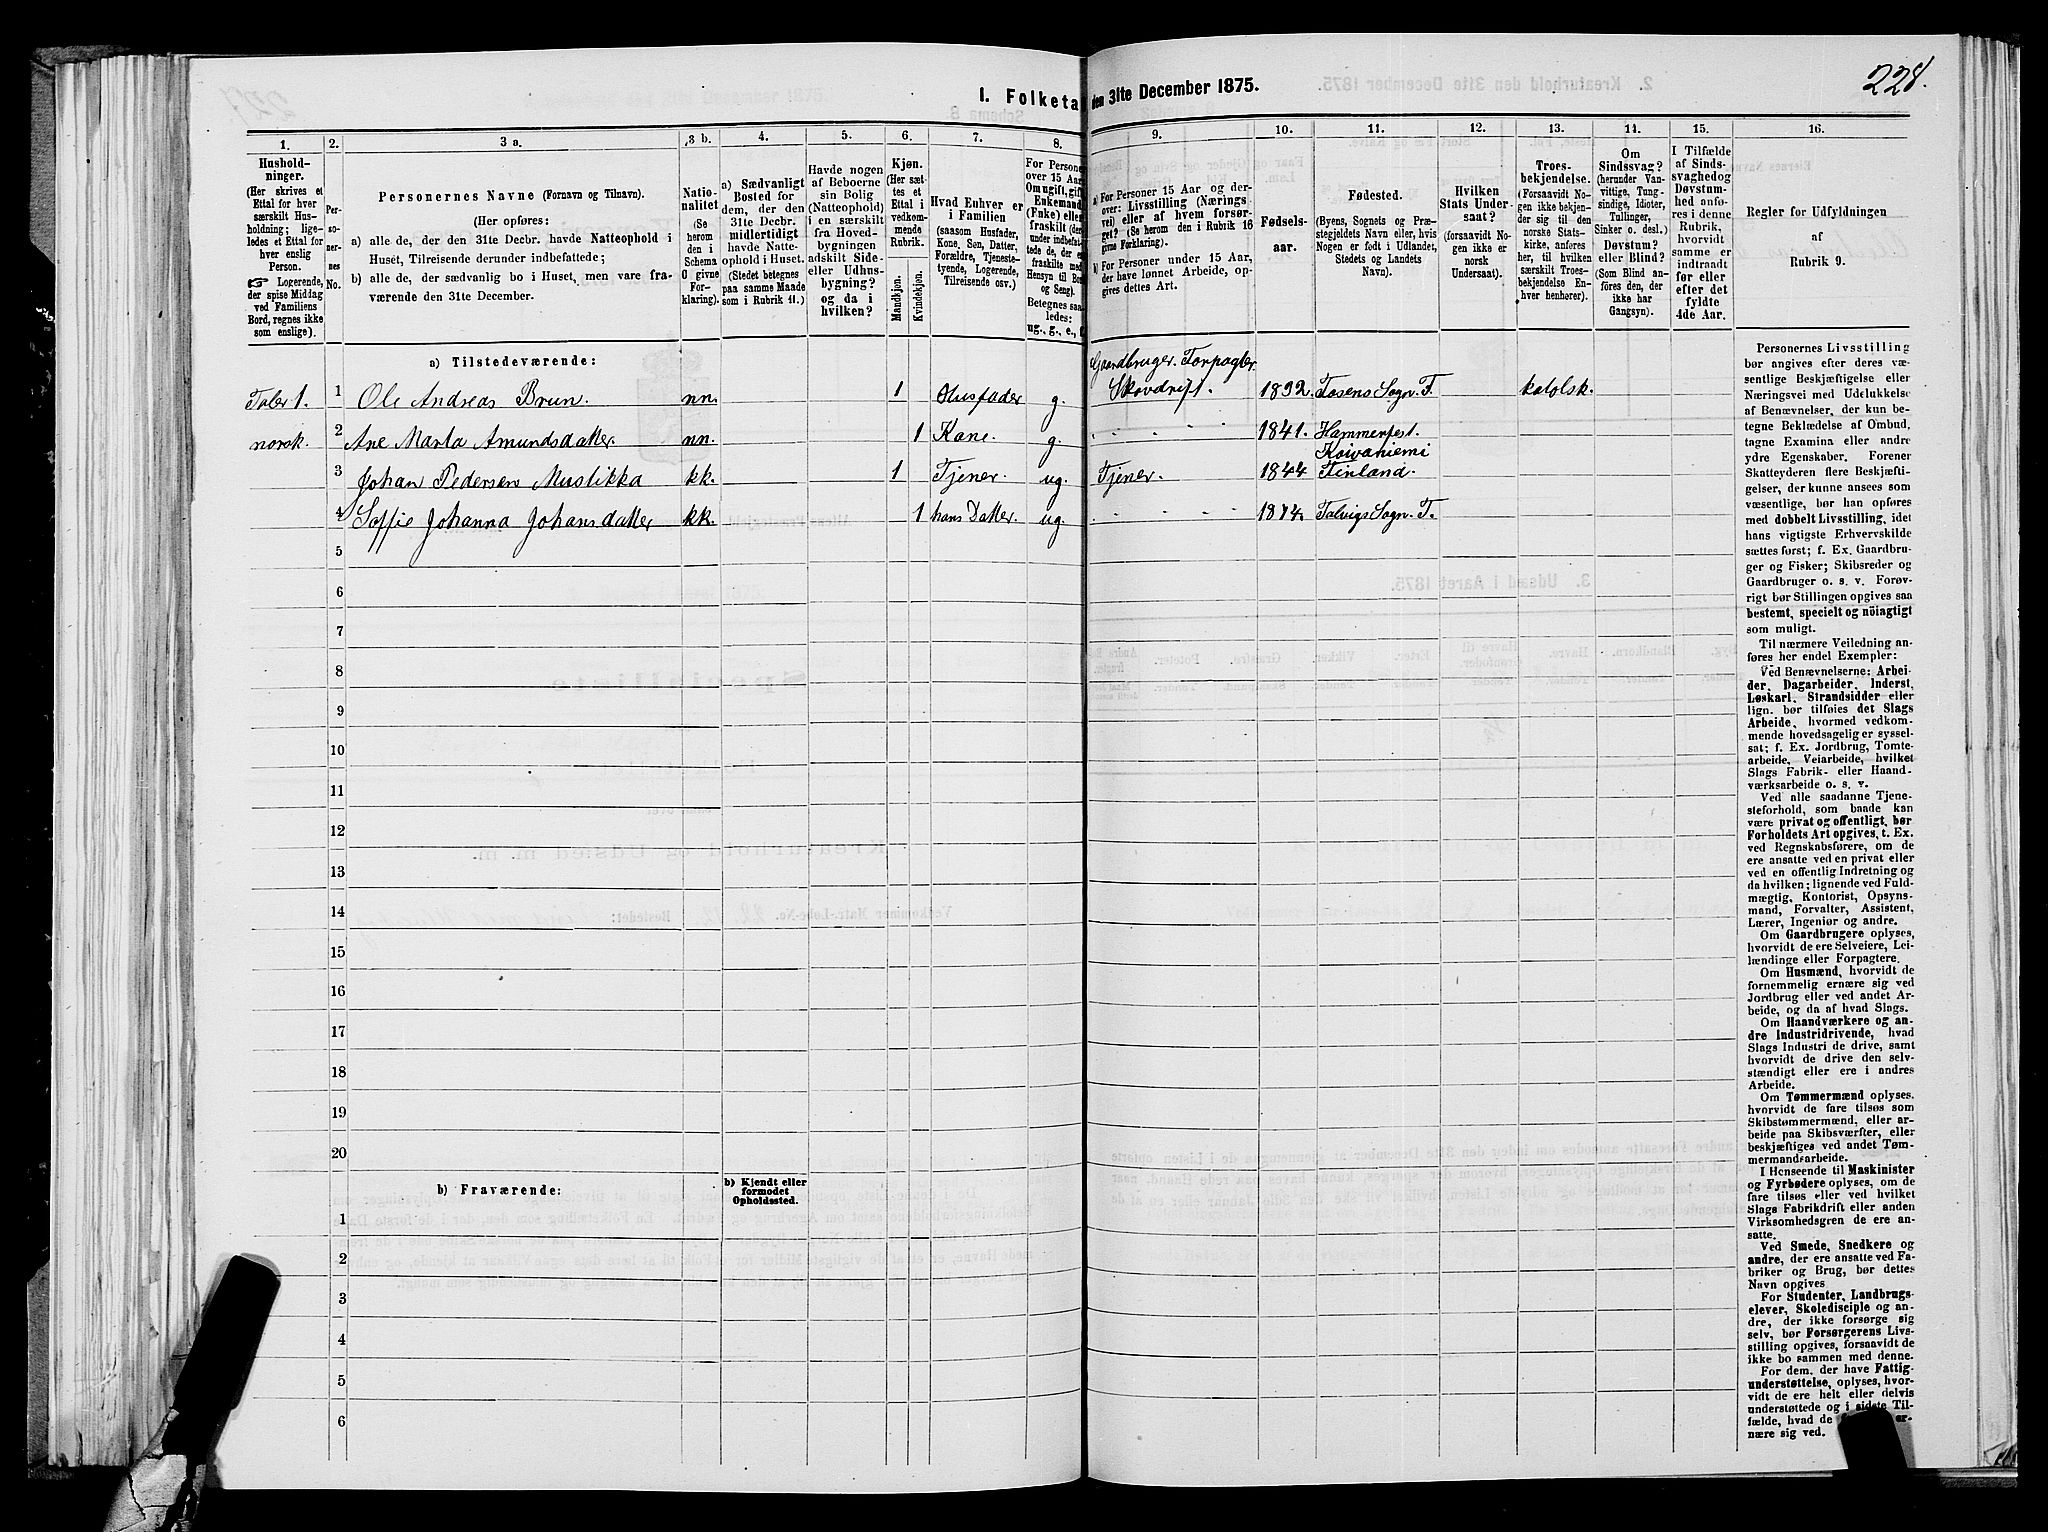 228.
I. Folketa den 31te December 1875.
1. 2. 3 a. 3 b. 4. 5. 6. 7. 8. 9. 10. 11. 12. 13. 14. 15. 16.
Hushold-
ninger.
(Her skrives et
Ettal for hver
særskilt Hus-
holdning; lige-
ledes et Ettal for
hver enslig
Person.
Logerende,
der spise Middag
ved Familiens
Bord, regnes ikke
som enslige).
Per-
so-
ner-
nes
No.
Personernes Navne (Fornavn og Tilnavn).
(Her opføres:
a) alle de, der den 31te Decbr. havde Natteophold i
Huset, Tilreisende derunder indbefattede;
b) alle de, der sædvanlig bo i Huset, men vare fra-
værende den 31te December.
Natio-
nalitet
(Se
herom
den i
Schema
C givne
For-
klaring).
a) Sædvanligt
Bosted for
dem, der den
31te Decbr.
midlertidigt
havde Natte-
ophold i Huset.
(Stedet betegnes
paa samme Maade
som i Rubrik 11.)
Havde nogen
af Beboerne
sin Bolig
(Natteophold)
i en særskilt
fra Hoved-
bygningen
adskilt Side-
eller Udhus-
bygning?
og da i
hvilken?
Kjøn.
(Her sæt-
tes et
Ettal i
vedkom-
mende
Rubrik.
Mandkjøn.
Kvindekjøn.
Hvad Enhver er
i Familien
(saasom Husfader,
Kone, Søn, Datter,
Forældre, Tjeneste-
tyende, Logerende,
Tilreisende osv.)
For Persone
over 15 Aar.
Om ugift, gift,
Enkemand
(Enke) eller
fraskilt (der
under indbefat-
tede de, der ere
fraskilte med
Hensyn til Bord
og Seng).
Betegnes saa-
ledes:
ug., g., e., f.
a) For Personer 15 Aar og der-
over: Livsstilling (Nærings-
vei) eller af hvem forsør-
get? (Se herom den i Rubrik 16
givne Forklaring).
b) For Personer under 15 Aar,
der have lønnet Arbeide, op-
gives dettes Art.
Fødsels-
aar.
Fødested.
(Byens, Sognets og Præ-
stegjeldets Navn eller, hvis
Nogen er født i Udlandet,
Stedets og Landets
Navn).
Hvilken
Stats Under-
saat?
(forsaavidt No-
gen ikke er
norsk
Undersaat).
Troes-
bekjendelse.
(Forsaavidt No-
gen ikke bekjen-
der sig til den
norske Stats-
kirke, anføres
her, til hvilken
særskilt Troes-
bekjendelse En-
hver henhører).
Om
Sindssvag?
(herunder Van-
vittige, Tung-
sindige, Idioter,
Tullinger,
Sinker o. desl.)
Døvstum?
eller Blind?
(Som Blind an-
føres den, der
ikke har
Gangsyn).
I Tilfælde
af Sinds-
svaghed og
Døvstum-
hed anfø-
res i denne
Rubrik,
hvorvidt
samme er
indtraadt
før eller
efter det
fyldte
4de Aar.
Regler for Udfyldningen
af
Rubrik 9.
a) Tilstedeværende:
Gaardbruger. Forpagter.
Taler 1. 1 Ole Andreas Brun. nn. 1 Husfader g. Skovdrift. 1832. Fosens Sogn. F. katolsk.
norsk. 2 Ane Marta Amundsdatter. nn. 1 Kone. g. " " " " 1841. Hammerfest.
Koivaniemi
3 Johan Pedersen Mustikka kk. 1 Tjener. ug. Tjener. 1844 Finland.
4 Soffie Johanna Johansdatter kk. 1 hans Datter. ug. " " " " 1874. Talvigs Sogn. F.
5
6
7
8
9
10
11
12
13
14
15
16
17
18
19
20
b) Fraværende:
b) Kjendt eller
formodet
Opholdssted.
1
2
3
4
5
6
Personernes Livsstilling
bør angives efter deres væ-
sentlige Beskjæftigelse eller
Næringsvei med Udelukkelse
af Benævnelser, der kun be-
tegne Beklædelse af Ombud,
tagne Examina eller andre
ydre Egenskaber. Forener
Skatteyderen flere Beskjæfti-
gelser, der kunne ansees som
væsentlige, bør han opføres
med dobbelt Livsstilling, idet
hans vigtigste Erhvervskilde
sættes først; f. Ex. Gaardbru-
ger og Fisker; Skibsreder og
Gaardbruger o. s. v. Forøv-
rigt bør Stillingen opgives saa
bestemt, specielt og nöiagtigt
som muligt.
Til nærmere Veiledning an-
føres her endel Exempler:
Ved Benævnelserne: Arbei-
der, Dagarbeider, Inderst,
Løskarl, Strandsidder eller
lign. bør tilføies det Slags
Arbeide, hvormed vedkom-
mende hovedsagelig er syssel-
sat; f. Ex. Jordbrug, Tomte-
arbeide, Veiarbeide, hvilket
Slags Fabrik- eller Haand-
værksarbeide o. s. v.
Ved alle saadanne Tjene-
steforhold, som baade kan
være privat og offentligt, bør
Forholdets Art opgives, t. Ex.
ved Regnskabsførere, om de
ere ansatte ved en privat eller
ved en offentlig Indretning og
da hvilken; lignende ved Fuld-
mægtig, Kontorist, Opsyns-
mand, Forvalter, Assistent,
Lærer, Ingeniør og andre.
Om Gaardbrugere oplyses,
hvorvidt de ere Selveiere, Lei-
lændinge eller Forpagtere.
Om Husmænd, hvorvidt de
fornemmelig ernære sig ved
Jordbrug eller ved andet Ar-
beide, og da af hvad Slags.
Om Haandværkere og an-
dre Industridrivende, hvad
Slags Industri de drive, samt
hvorvidt de drive den selv-
stændigt eller ere i andres
Arbeide.
Om Tømmermænd oplyses,
hvorvidt de fare tilsøs som
Skibstømmermænd, eller ar-
beide paa Skibsværfter, eller
beskjæftiges ved andet Tøm-
mermandsarbeide.
I Henseende til Maskinister
og Fyrbødere oplyses, om de
fare tilsøs eller ved hvilket
Slags Fabrikdrift eller anden
Virksomhedsgren de ere an-
satte.
Ved Smede, Snedkere og
andre, der ere ansatte ved Fa-
briker og Brug, bør dettes
Navn opgives
For Studenter, Landbrugs-
elever, Skoledisciple og an-
dre, der ikke forsørge sig
selv, bør Forsørgerens Livs-
stilling opgives, forsaavidt de
ikke bo sammen med denne.
For dem, der have Fattig-
understøttelse, oplyses, hvor-
vidt de ere helt eller delvis
understøttede og i sidste Til-
fælde, hvad de er-
nære sig ved.